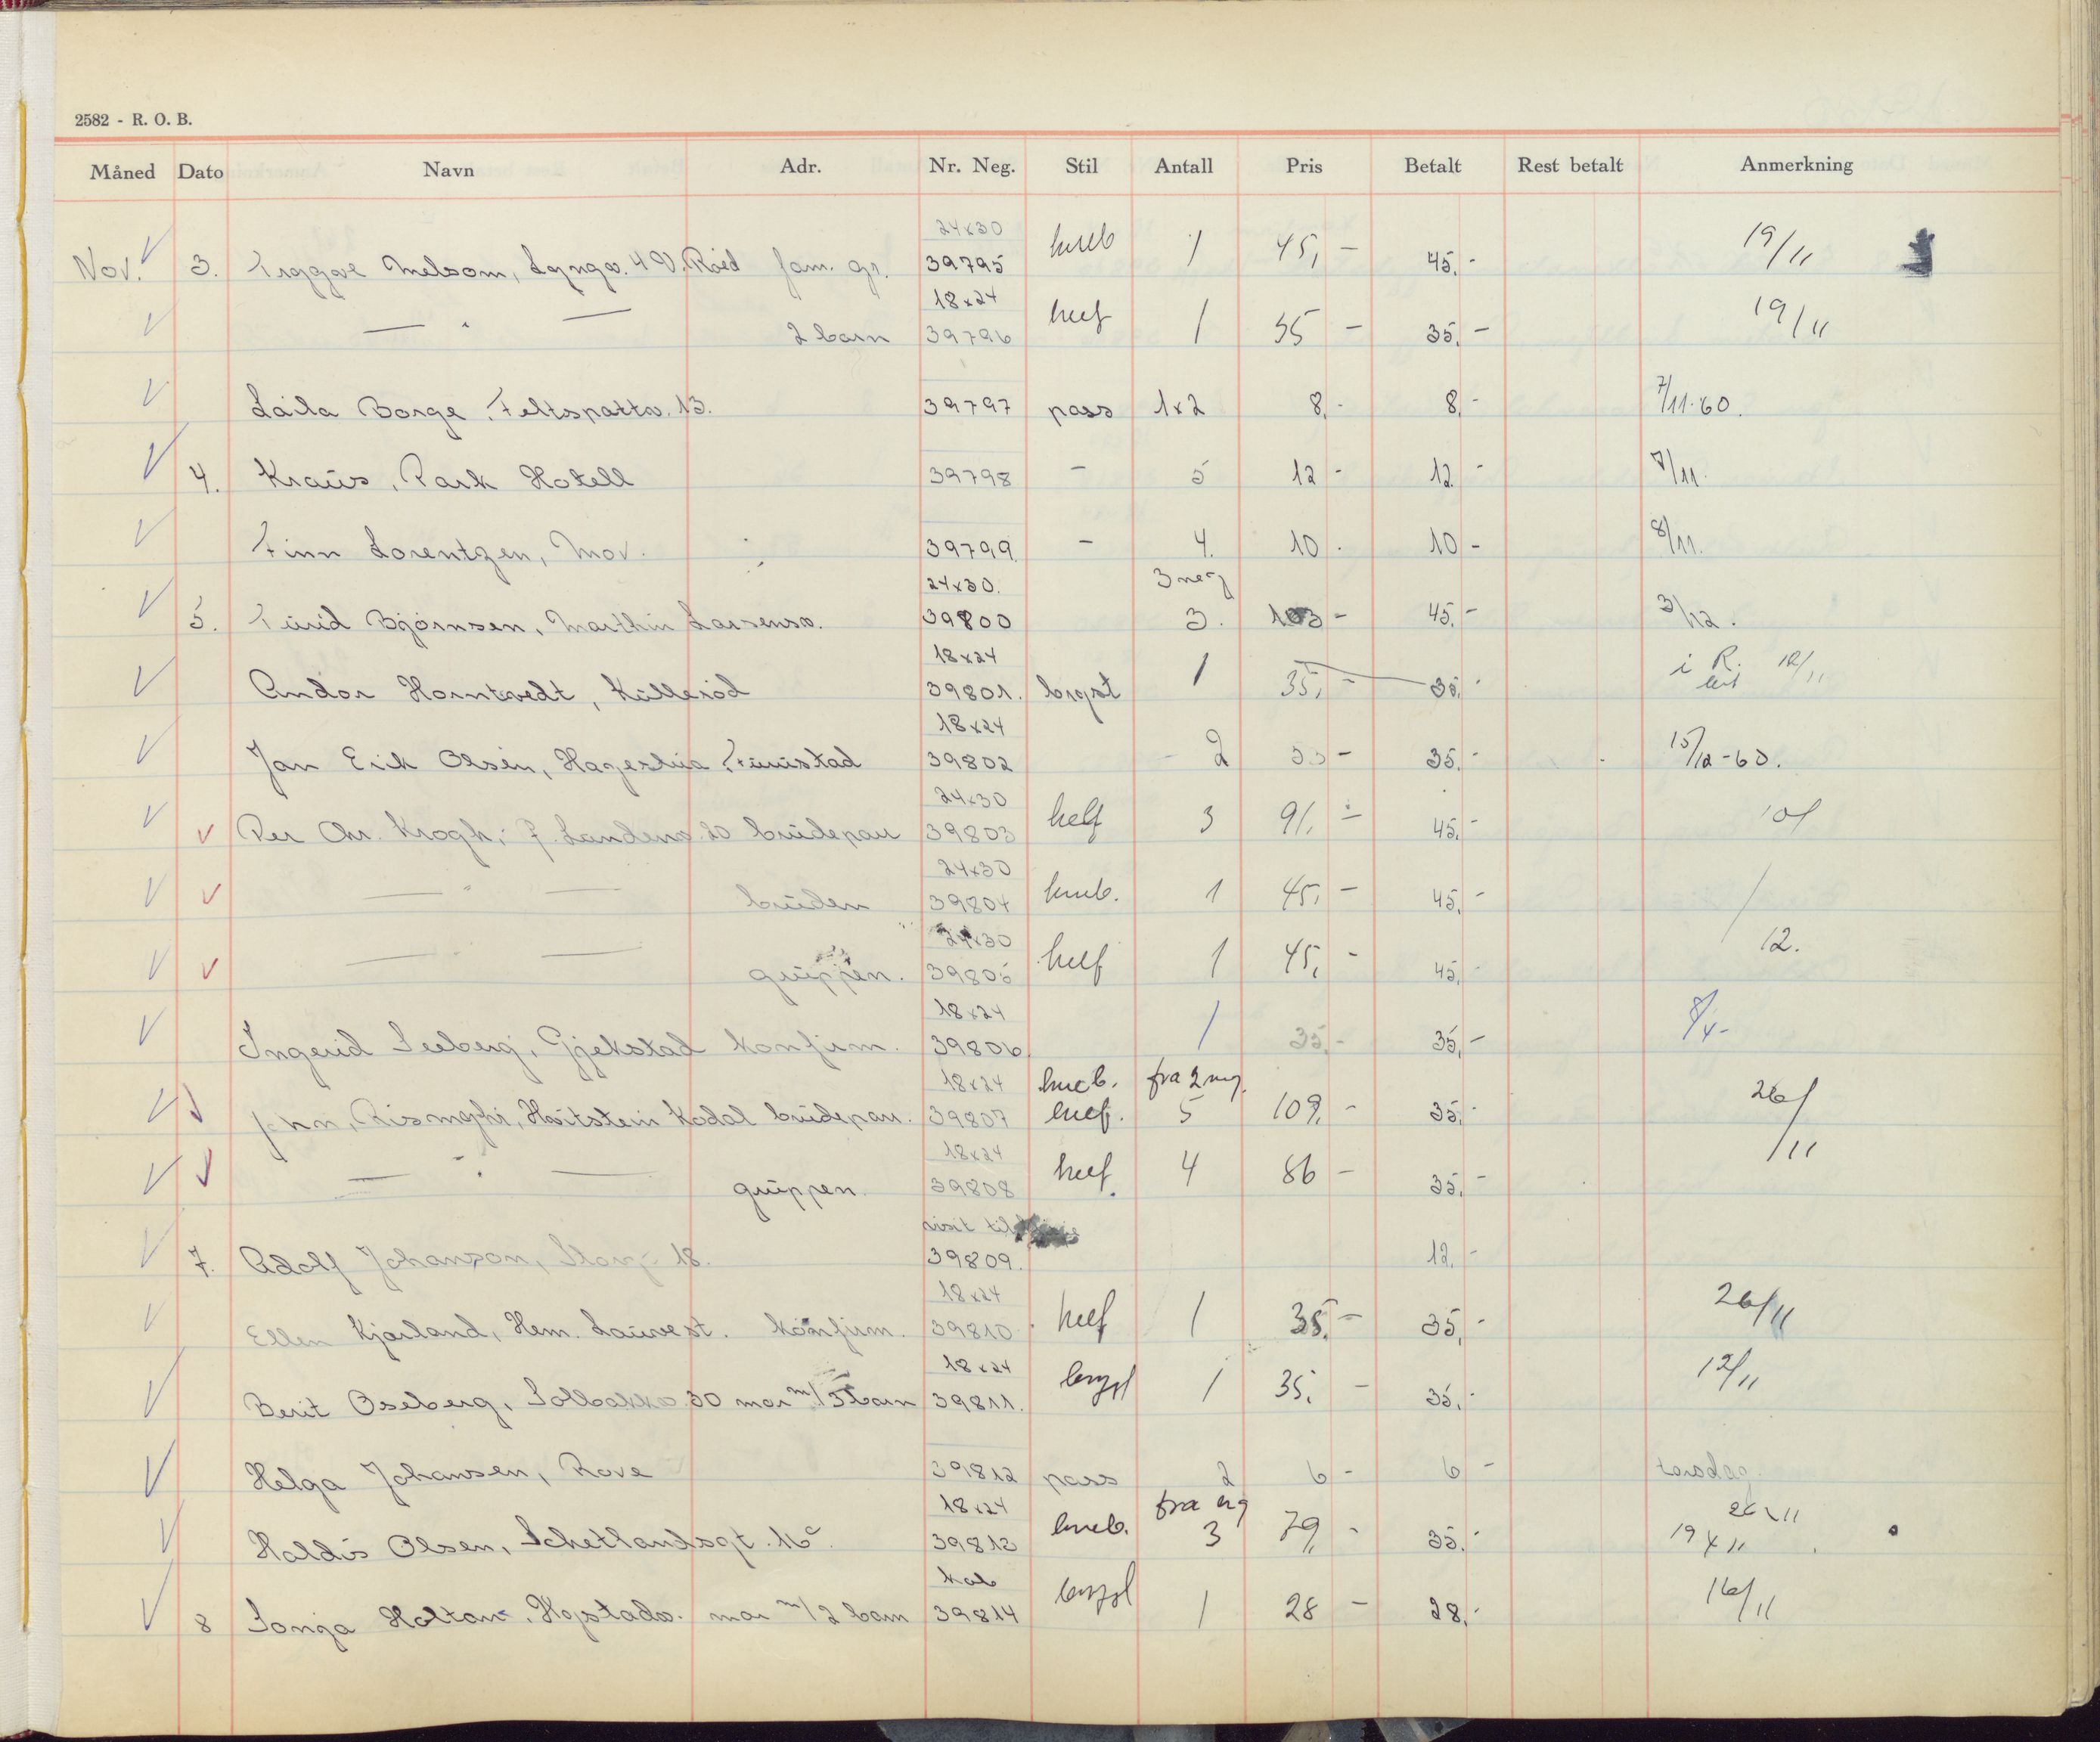 2582 - R. O. B.
Måned Dato Navn Adr. Nr. Neg. Stil Antall Pris Betalt Rest betalt Anmerkning
24x30
Nov. 3. Tryggve Melsom, Lyngv. 4 V. Råed fam. gr. 39795 1 45,- 45.- 19/11
18x24
— " — 2 barn 39796 1 35 - 35.- 19/11
Laila Borge, Feltspattv. 13. 39797 pass 1x2 8.- 8.- 7/11-60.
4. Kraus, Park Hotell 39798 - 5 12 - 12 - 7/11.
Finn Lorentzen, Mov. 39799 - 4. 10 - 10 - 8/11.
24x30. 3 neg
5. Turid Bjørnsen, Marthin Larsensv. 39800 3. 103 - 45.- 3/12.
18x24
Andor Horntvedt, Kullerød 39801. bryst 1 35,- 35.- i R. 12/11
18x24
Jan Erik Olsen, Furustad 39802 2 35 - 35.- 15/12-60.
24x30
Per Chr. Krogh, 20 brudepar 39803 helf 3 91,- 45.- 10/
24x30
— " — bruden 39804 kneb. 1 45,- 45,-
24x30
— " — gruppen. 39805 helf 1 45,- 45,- 12.
18x24
Ingerid Seeberg, Gjekstad konfirm. 39806 1 35,- 35,-
18x24 kneb. fra 2 neg.
John, Kodal brudepar. 39807 helf. 5 109,- 35,- 26/11
18x24
— " — gruppen. 39808 helf. 4 86 - 35,-
visit til
7. Adolf Johanson, Storg. 18. 39809. 12,-
18x24
Ellen Kjærland, Hem. Lauvest. konfirm. 39810 helf 1 35,- 35,- 26/11
18x24
Berit Oseberg, Solbakkv. 30 mor m/3 barn 39811. bryst 1 35,- 35,- 12/11
Helga Johansen, Rove 39812 pass 2 6 - 6 - torsdag.
18x24 fra neg 26 11
Haldis Olsen, Schetlandsgt. 16c. 39813 kneb. 3 79,- 35.- 19 x 11
kab
8 Sonja Holtan, Hystadv. mor m/2 barn 39814 bryst 1 28 - 28,- 16/11